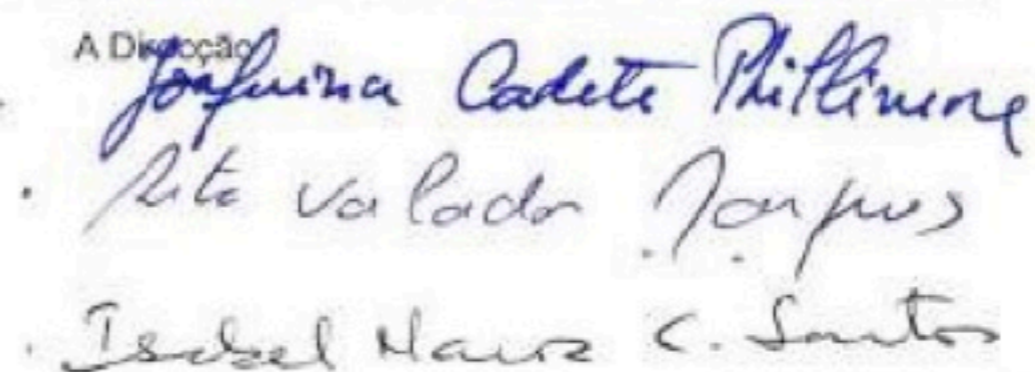 A Direcção
Joaquina Cadete Phillimore
Rita Valadas Marques
Isabel Maria C. Santos